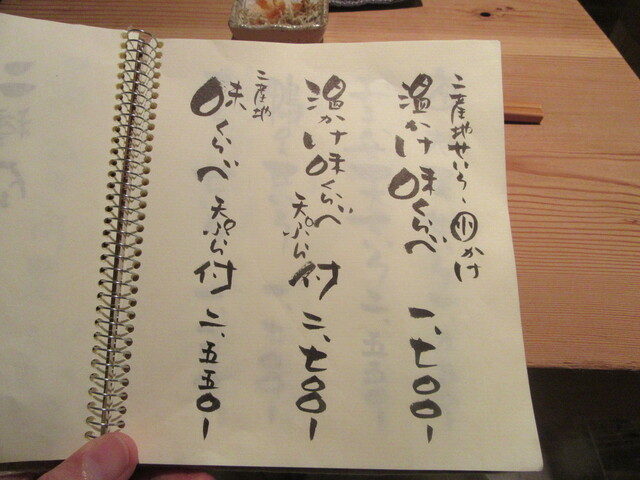 二産地せいろ・小かけ
温かけ味くらべ 一、七〇〇ー
温かけ味くらべ 天ぷら付 二、七〇〇ー
二産地
味くらべ 天ぷら付 二、五五〇ー